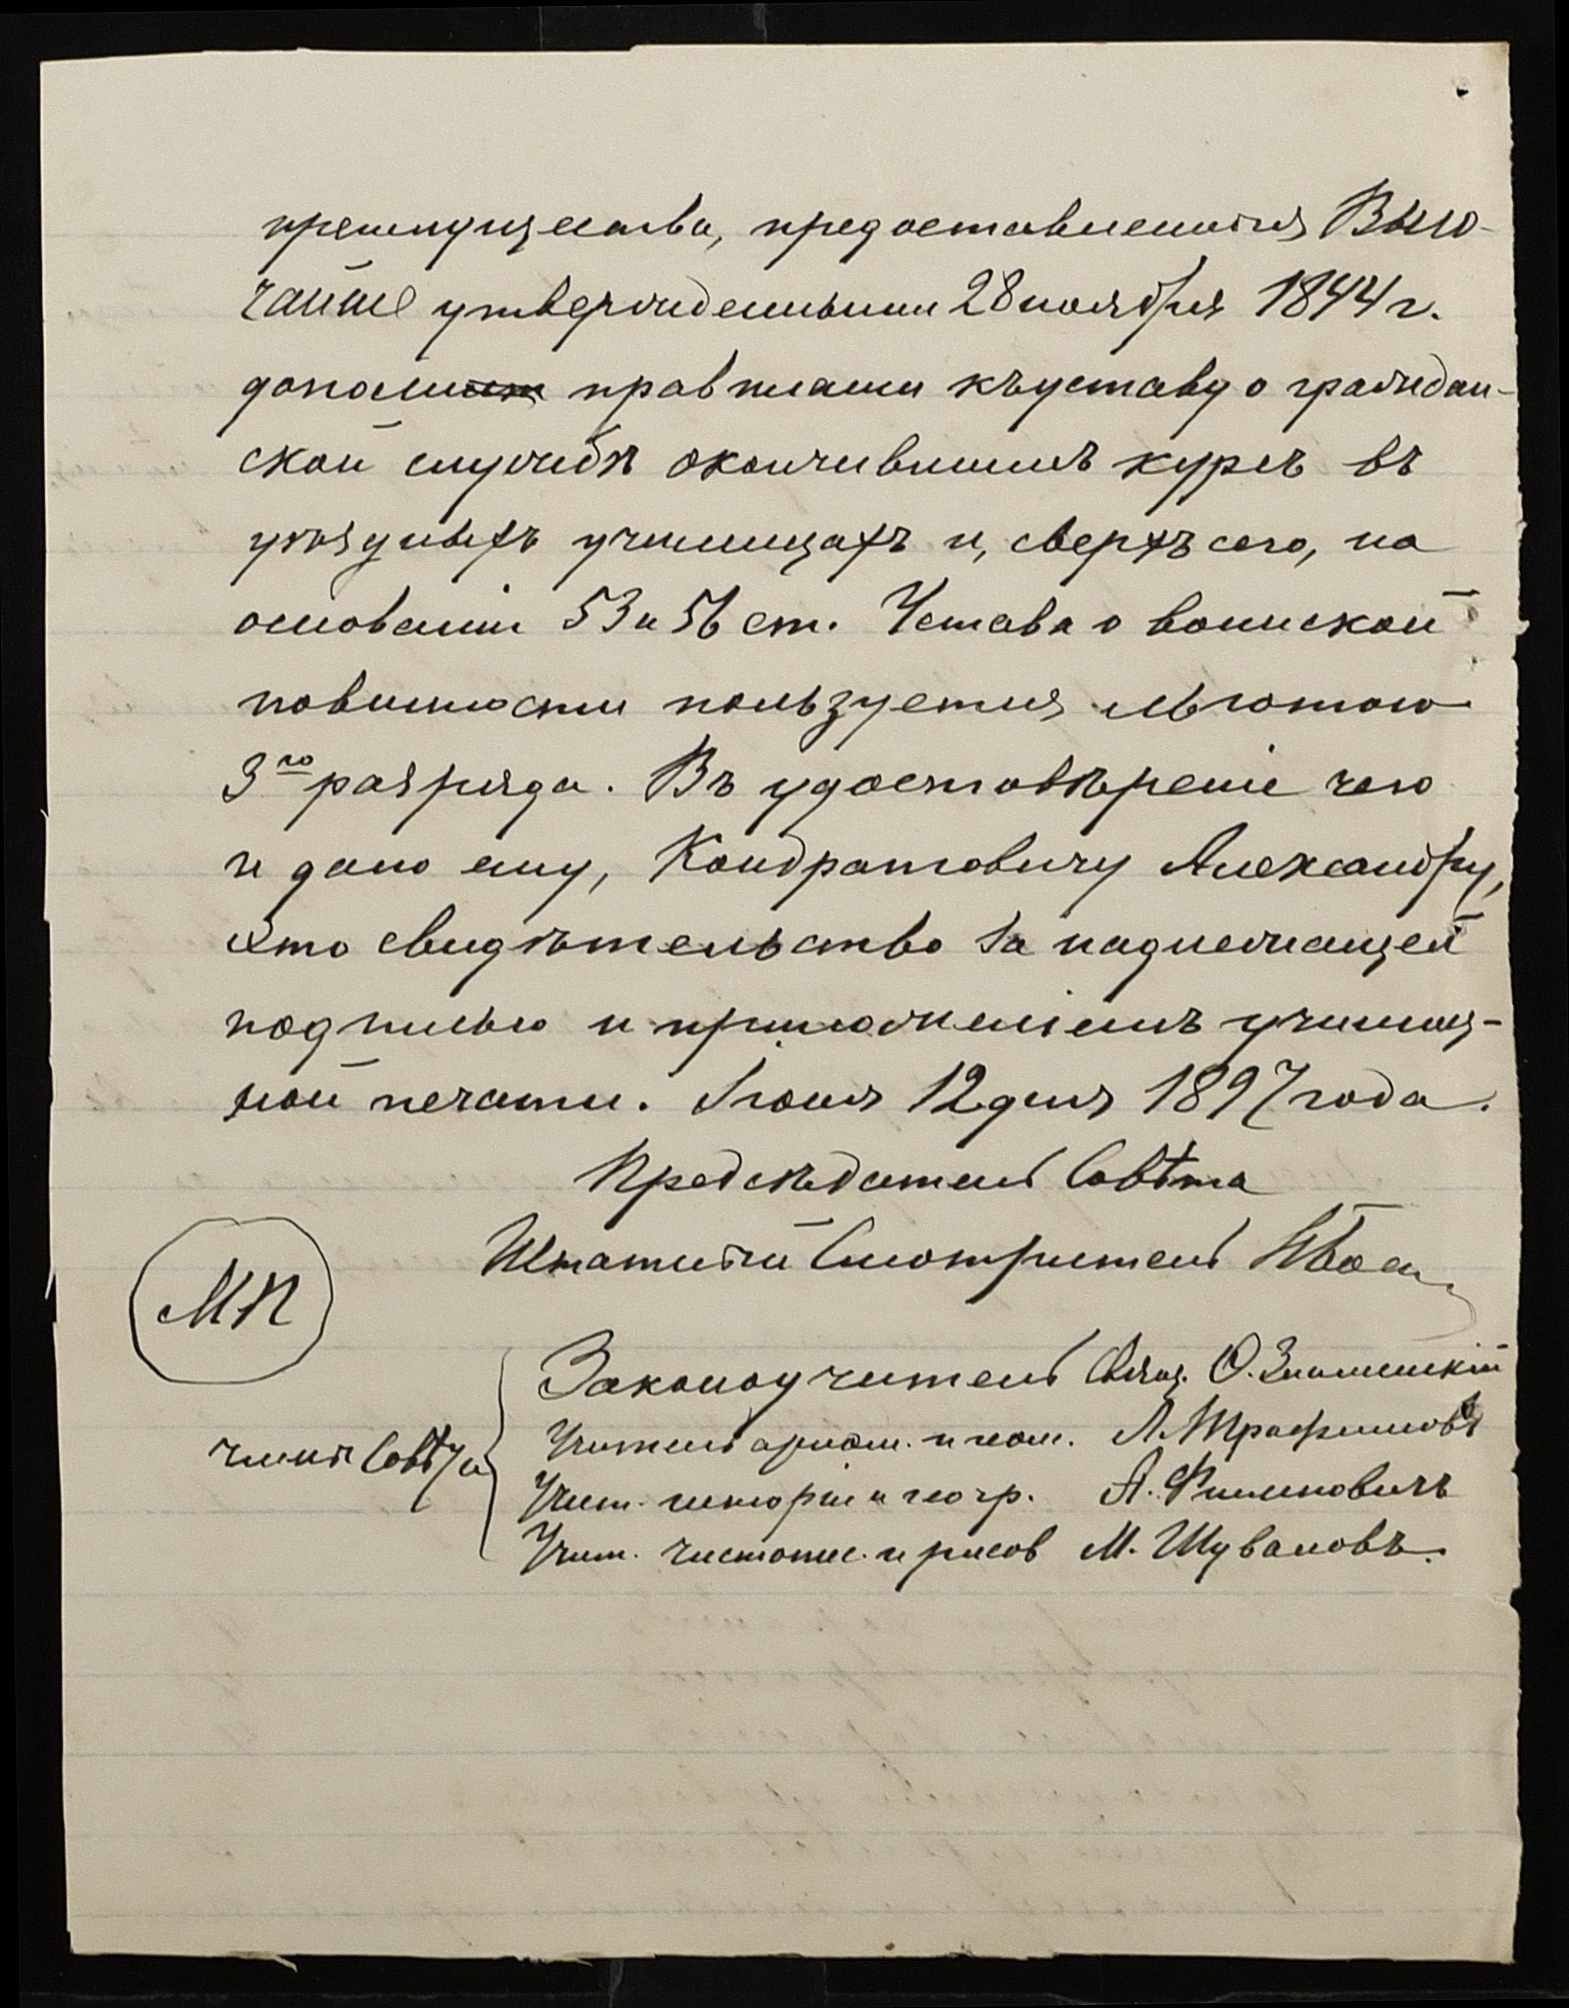 преимущества, предоставленныя Высо-
чайше утвержденными 28 ноября 1844 г.
дополнит правилами къ уставу о граждан-
ской службѣ окончившимъ курсъ въ
уѣздныхъ училищахъ и, сверхъ сего, на
основаніи 53 и 56 ст. Устава о воинской
повинности пользуется льготою
3го разряда. Въ удостовѣреніе чего
и дано ему, Кондратовичу Александру,
это свидѣтельство за надлежащей
подписью и приложеніемъ училищ-
ной печати. Іюня 12 дня 1897 года.
Предсѣдатель Совѣта
Штатный Смотритель
МП
Законоучитель Свящ. Ѳ. Знаменскій
Учитель ариѳм. и геом. А. Трафимовъ
члены Совѣта
Учит. исторіи и геогр. А. Филиповичъ
Учит. чистопис. и рисов М. Шуваловъ.